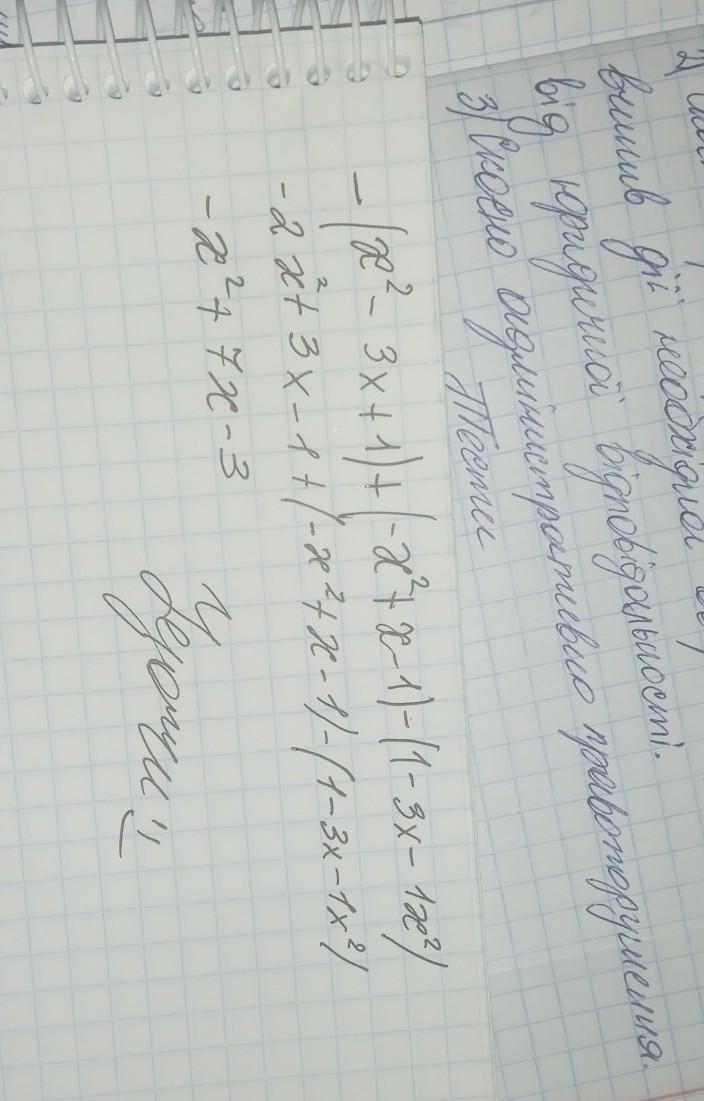 вчинив дії необхідно
від юридичної відповідальності.
3) Скоєно адміністративно правопорушення.
Тести
- (x² - 3x + 1) + (-x² + x - 1) - (1 - 3x - 1x²)
-2x² + 3x - 1 + (-x² + x - 1) - (1 - 3x - 1x²)
-x² + 7x - 3